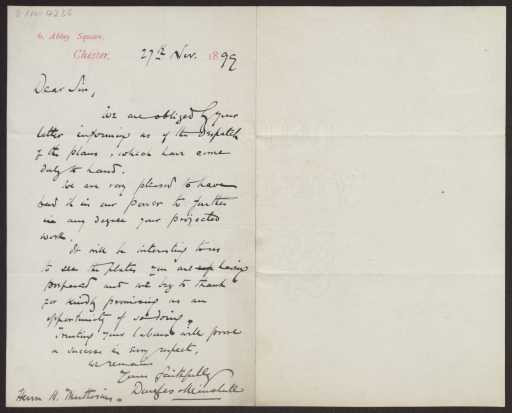 6, Abbey Square,
Chester,
27th Nov. 1899
Dear Sir,
We are obliged by your
letter informing us of the dispatch
of the plans, which have come
duly to hand.
We are very pleased to have
had it in our power to further
in any degree your projected
work.
It will be interesting to us
to see the plates you are having
prepared and we beg to thank
you kindly promising us an
opportunity of so doing.
Trusting your labours will prove
a success in every respect,
we remain
Yours faithfully
Douglas & Minshull
Herrn H. Muthesius.